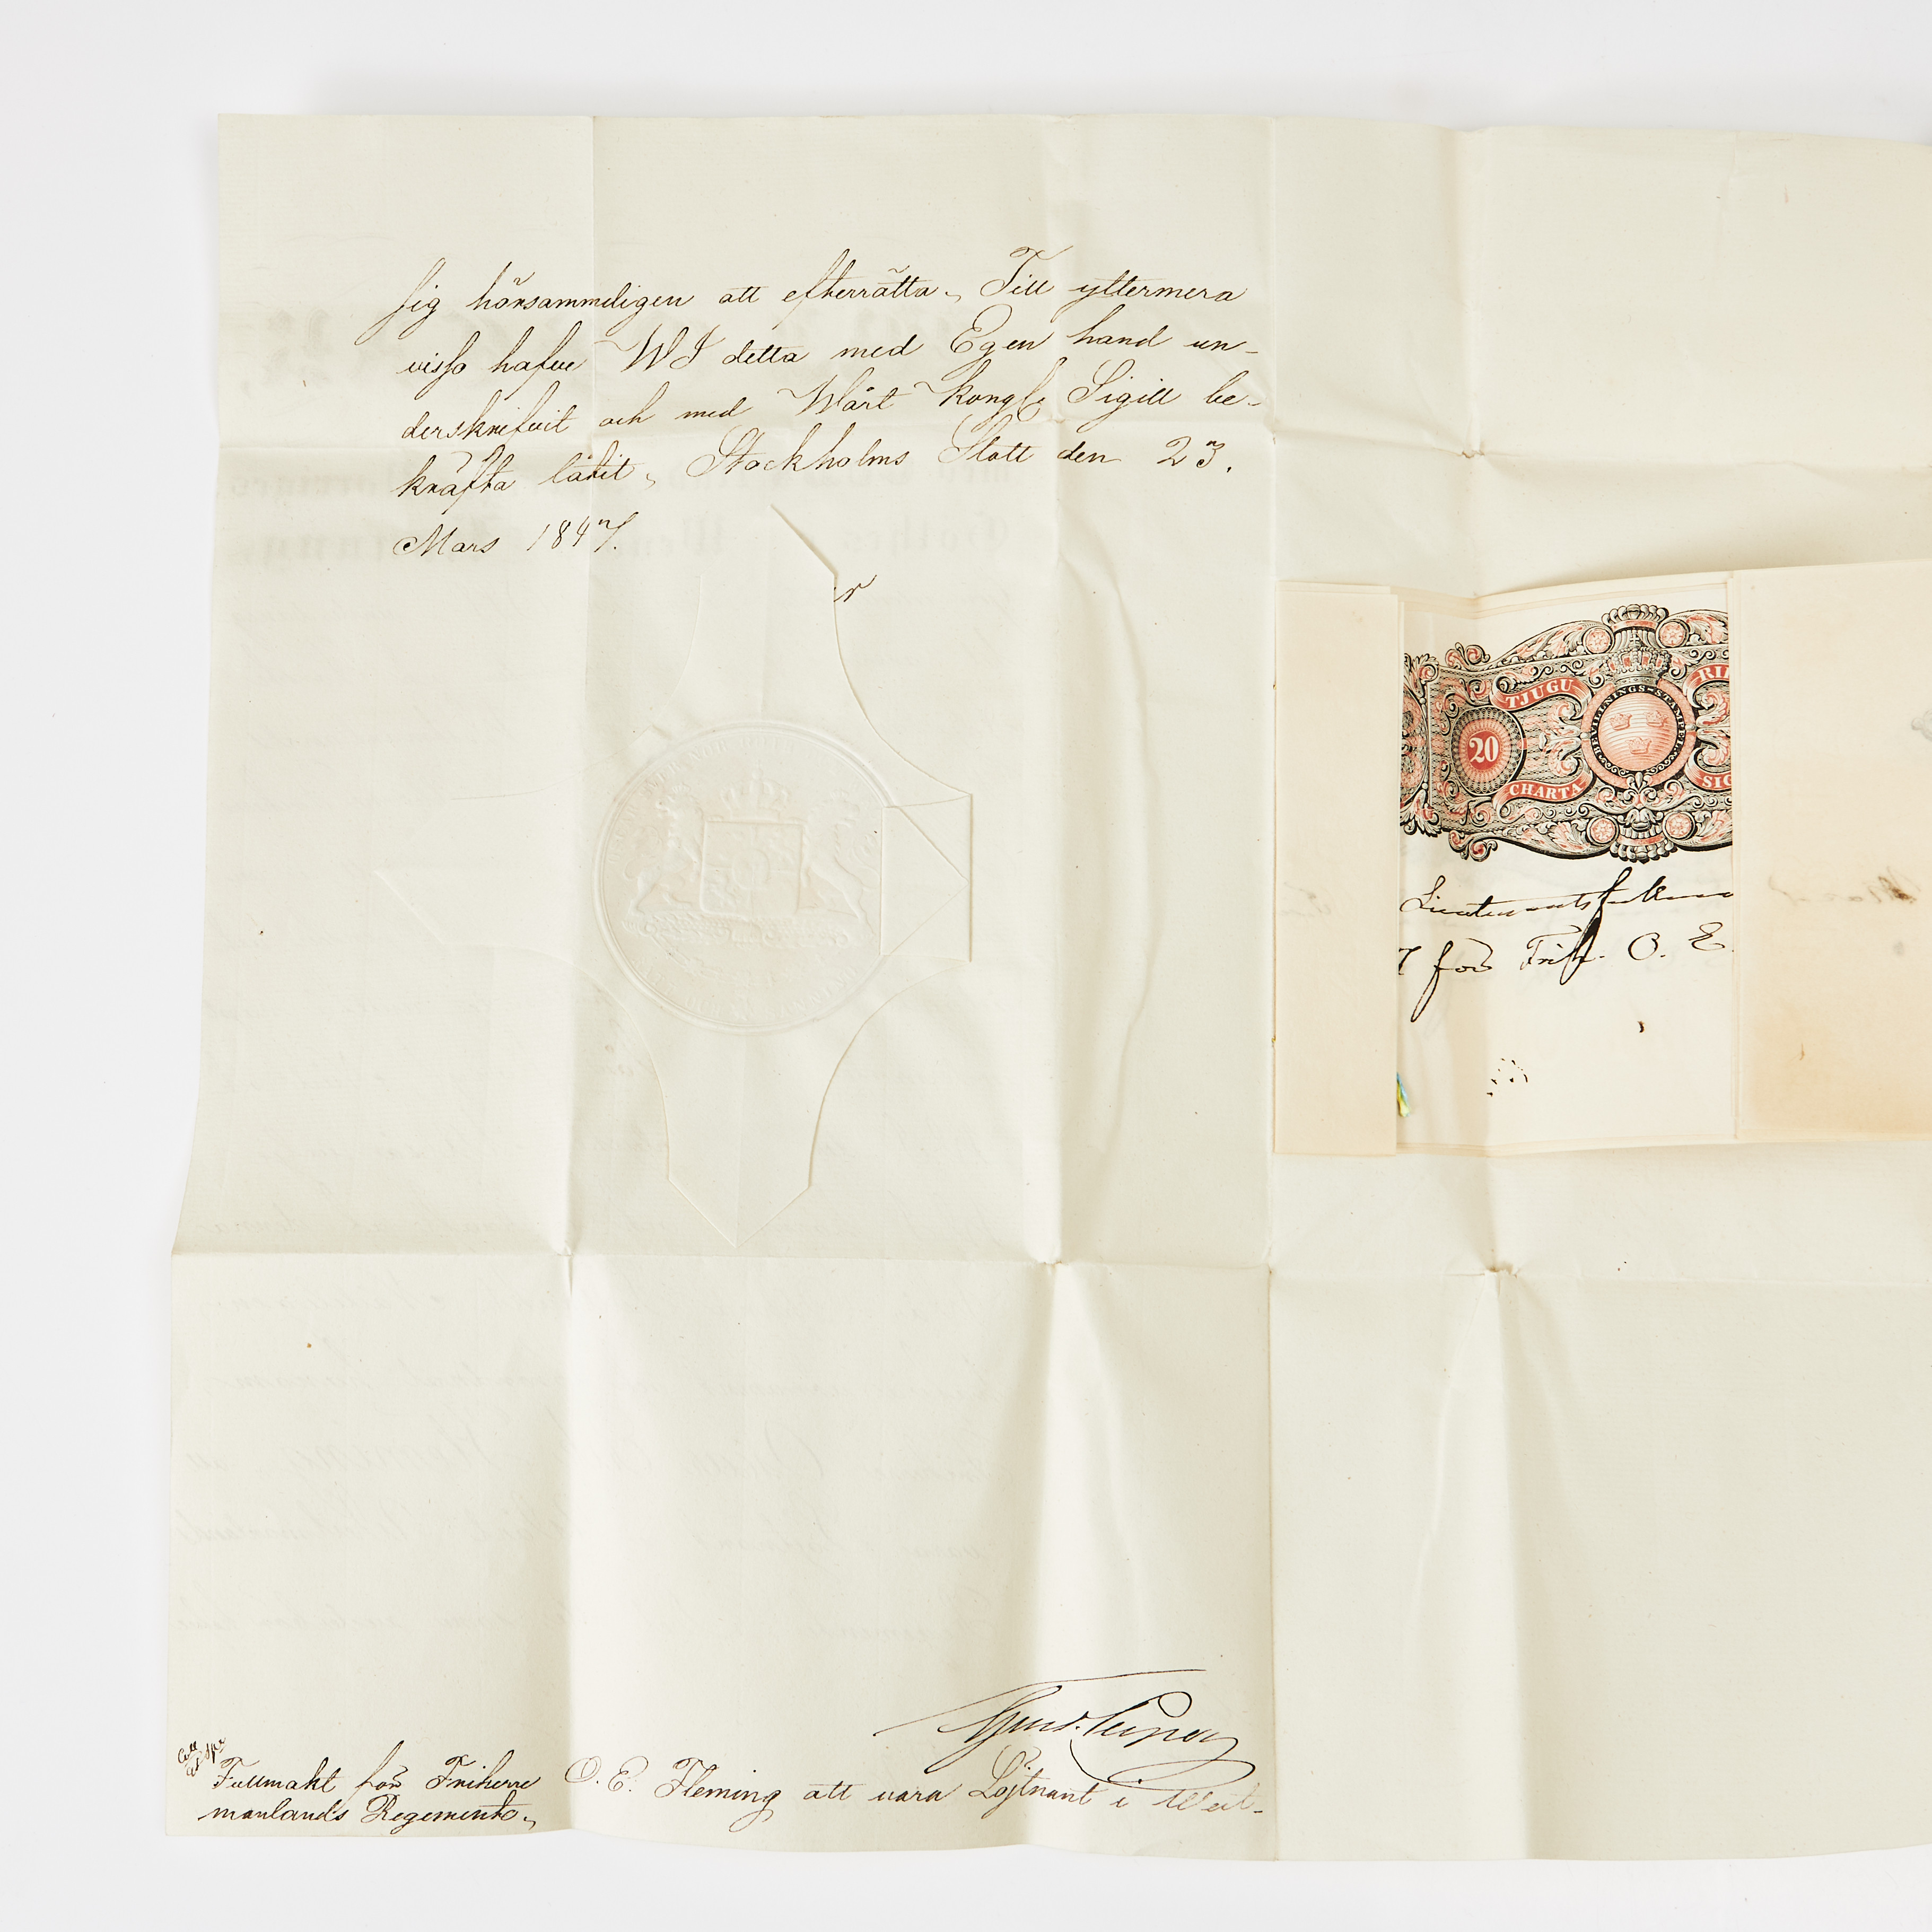 sig hörsammeligen att efterrätta. Till yttermera
visso hafve WI detta med Egen hand un-
derskrifvit och med Wårt Kongl. Sigill be-
kräfta låtit. Stockholms Slott den 23.
Mars 1847.
TJUGU
20
CHARTA
BEVILLNINGS-STÄMPEL
för Frih. O. E.
Fullmakt för Friherre O. E. Fleming att vara Löjtnant i West-
manlands Regemente.